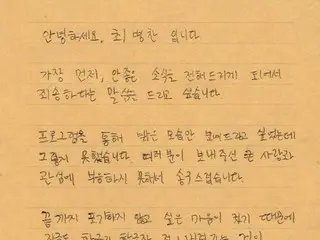 안녕하세요, 최병찬 입니다
가장 먼저, 안좋은 소식을 전해드리게 되어서
죄송하다는 말씀을 드리고 싶습니다
프로그램을 통해 밝은 모습만 보여드리고 싶었는데
그렇지 못했습니다. 여러분이 보내주신 큰 사랑과
관심에 부응하지 못해서 송구스럽습니다.
끝까지 포기하지 않고 싶은 마음이 컸기 때문에